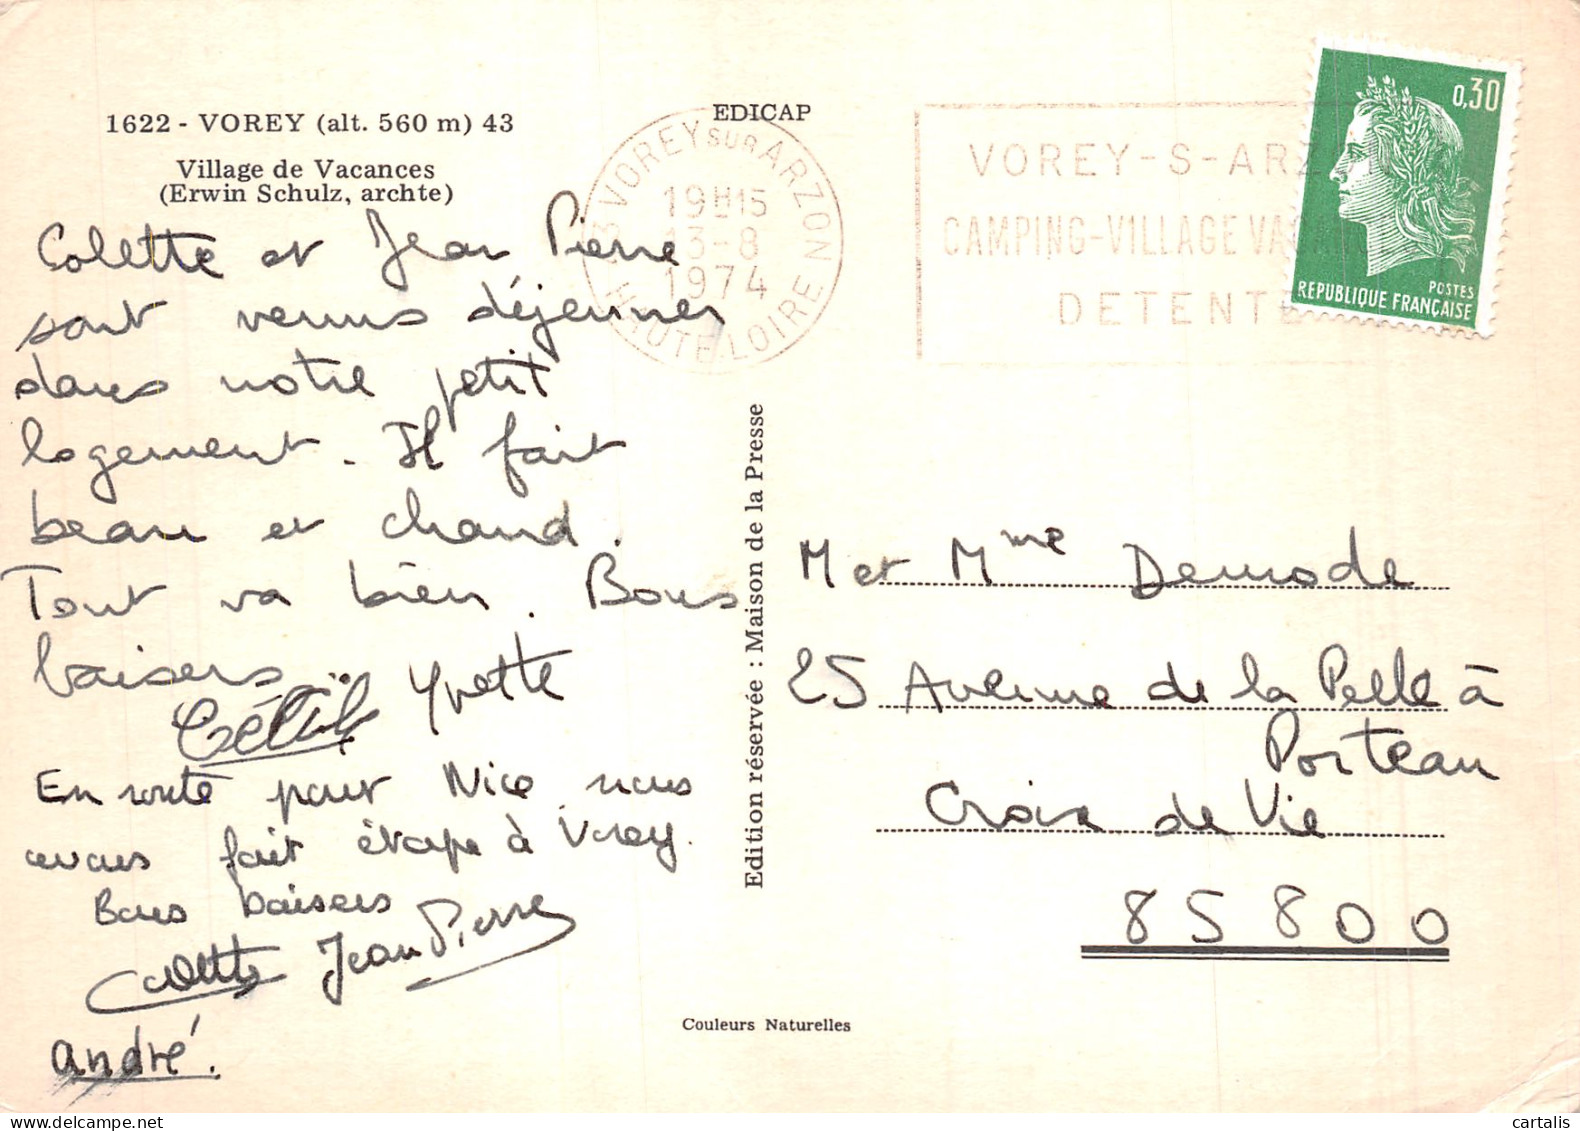 1622 - VOREY (alt. 560 m) 43
Village de Vacances
(Erwin Schulz, archte)
EDICAP
43 VOREY SUR ARZON
19H15
13-8
1974
HAUTE-LOIRE
VOREY-S-ARZ
CAMPING-VILLAGE VACAN
DETENTE
0,30
POSTES
REPUBLIQUE FRANÇAISE
Colette et Jean Pierre
sont venus déjeuner
dans notre petit
logement. Il fait
beau et chaud.
Tout va bien. Bons
baisers
Yvette
En route pour Nice nous
avons fait étape à Vorey.
Bons baisers
Colette Jean Pierre
André.
Edition réservée : Maison de la Presse
Couleurs Naturelles
M et Mme Demode
25 Avenue de la Pelle à
Porteau
Croix de Vie
85800
cartalis